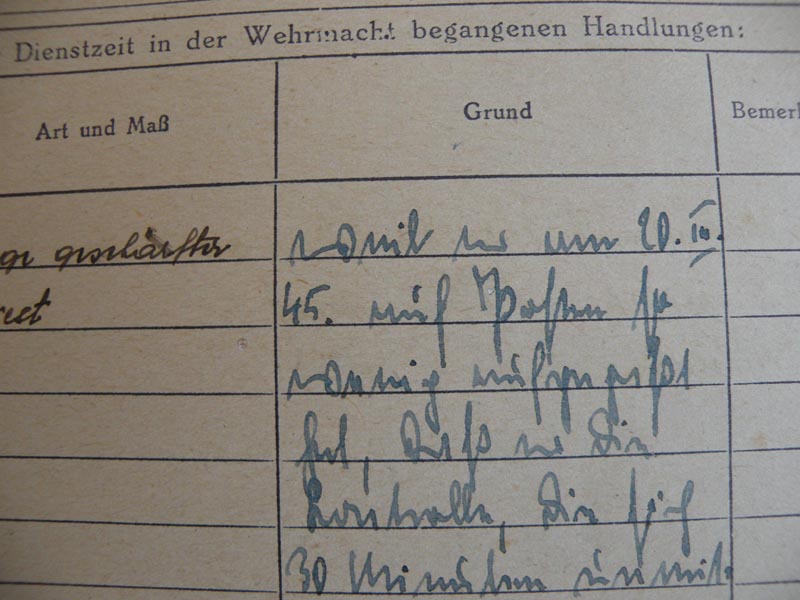 Dienstzeit in der Wehrmacht begangenen Handlungen:
Art und Maß
Grund
Bemerk
ge geschärfter
rest
weil er am 20. III.
45. auf Posten so
wenig aufgepaßt
hat, daß er die
Kontrolle, die sich
30 Minuten unmit-